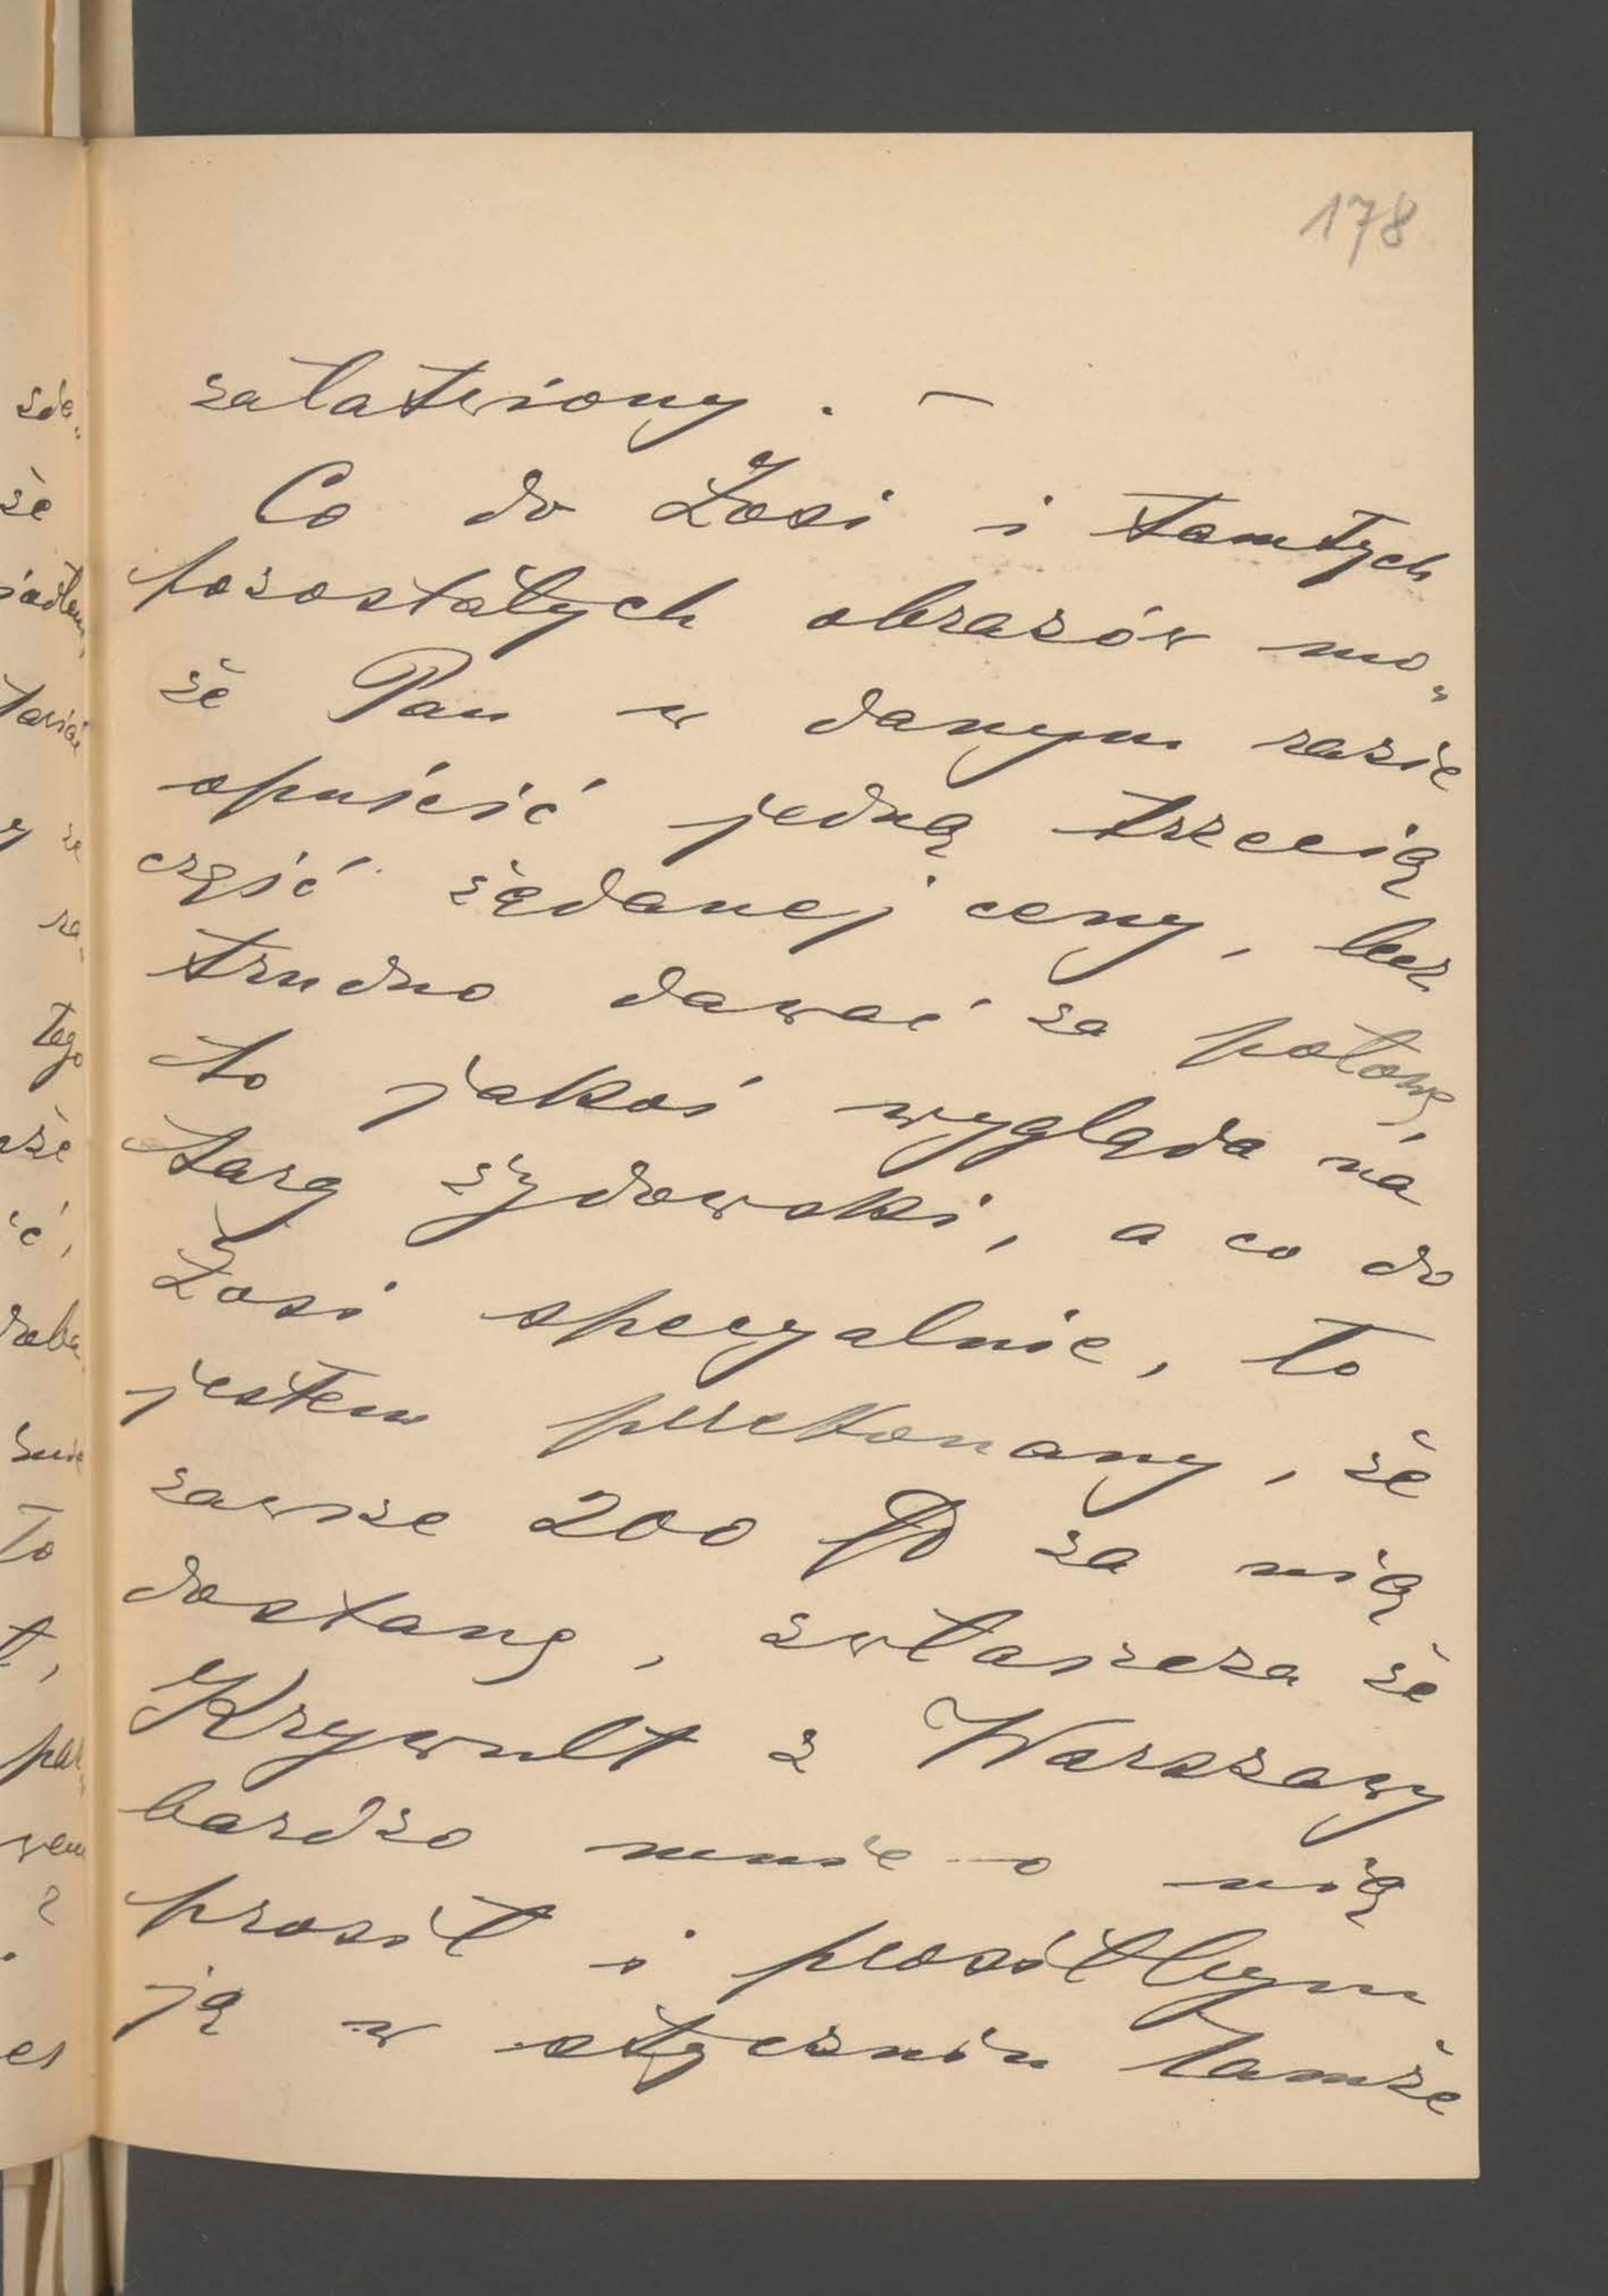 178
załatwiony. —
Co do Zosi i tamtych
pozostałych obrazów mo„
że Pan w danym razie
opuścić jedną trzecią
część żądanej ceny, lecz
trudno dawać za połowę,
to jakoś wygląda na
targ żydowski, a co do
Zosi specyalnie, to
jestem przekonany, że
zawsze 200 fl za nią
dostanę, zwłaszcza że
Krywult z Warszawy
bardzo mnie o nią
prosił i prosiłbym
ją w styczniu tamże